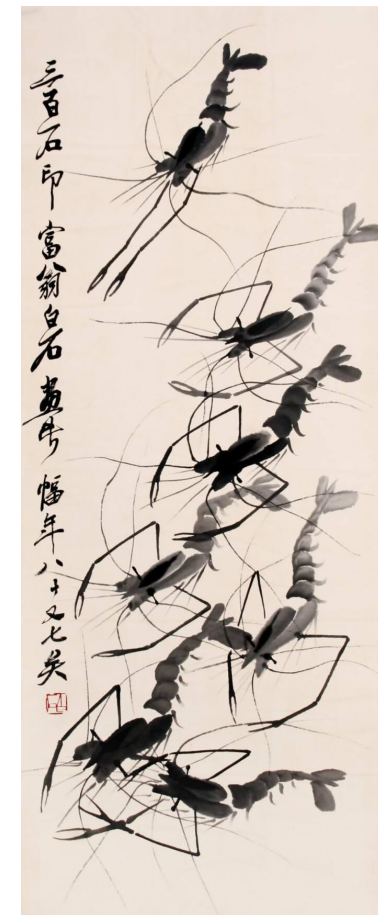 三百石印富翁白石画此幅年八十又七矣
白石